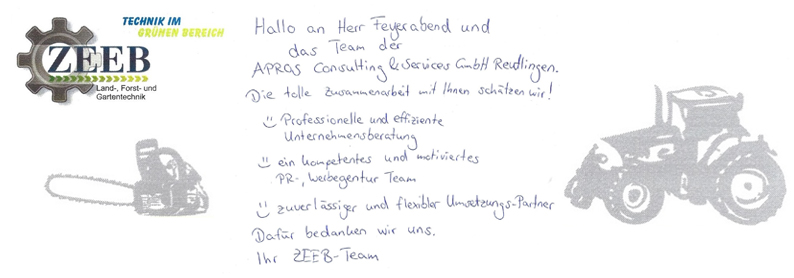 TECHNIK IM
GRÜNEN BEREICH
ZEEB
Land-, Forst- und
Gartentechnik
Hallo an Herr Feyerabend und
das Team der
APROS Consulting & Services GmbH Reutlingen.
Die tolle Zusammenarbeit mit Ihnen schätzen wir!
Professionelle und effiziente
Unternehmensberatung
ein kompetentes und motiviertes
PR-, Werbegentur Team
zuverlässiger und flexibler Umsetzungs-Partner
Dafür bedanken wir uns.
Ihr ZEEB-Team